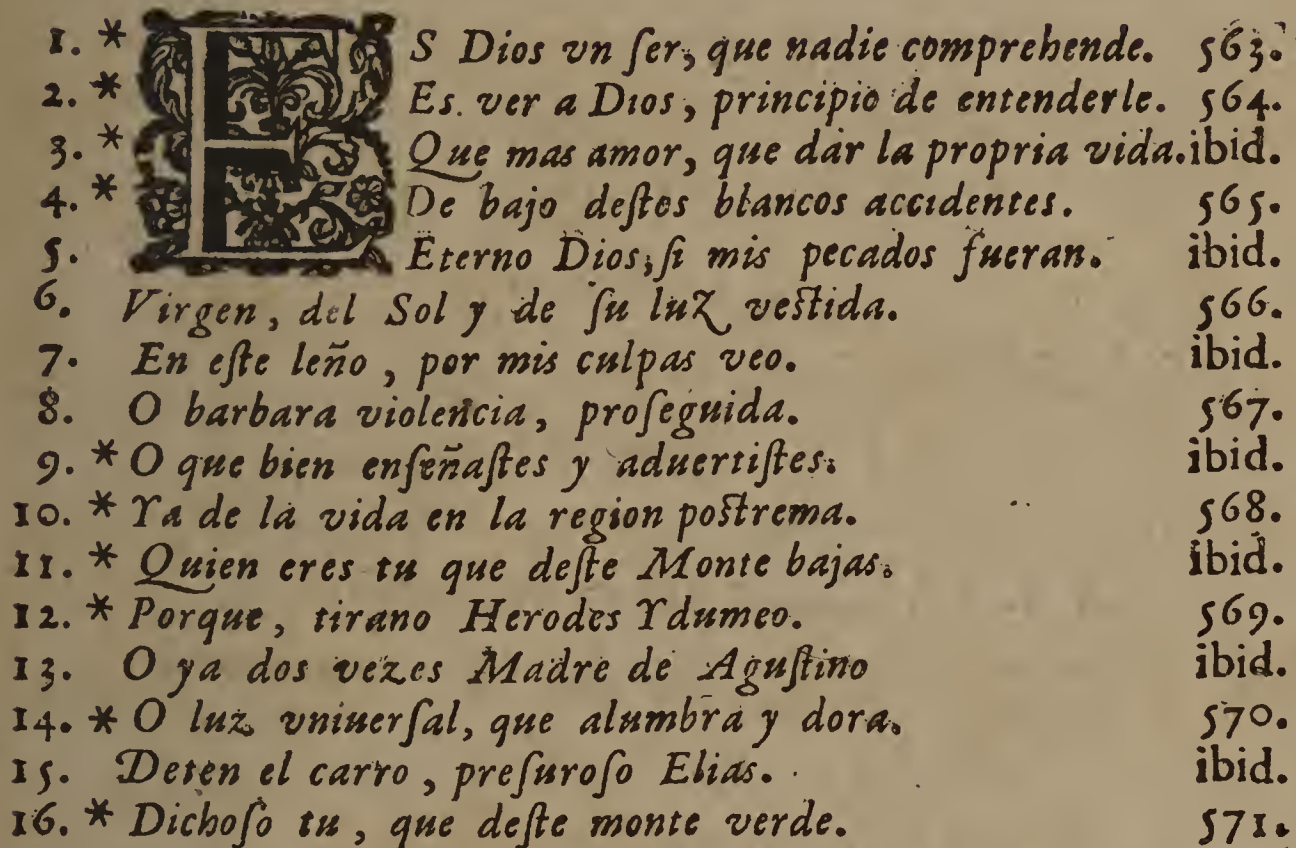 1. * ES Dios vn ſer, que nadie comprehende. 563.
2. * Es ver a Dios, principio de entenderle. 564.
3. * Que mas amor, que dar la propria vida. ibid.
4. * De bajo deſtos blancos accidentes. 565.
5. Eterno Dios, ſi mis pecados fueran. ibid.
6. Virgen, del Sol y de ſu luz veſtida. 566.
7. En eſte leño, por mis culpas veo. ibid.
8. O barbara violencia, proſeguida. 567.
9. * O que bien enſeñaſtes y aduertiſtes. ibid.
10. * Ya de la vida en la region poſtrema. 568.
11. * Quien eres tu que deſte Monte bajas. ibid.
12. * Porque, tirano Herodes Ydumeo. 569.
13. O ya dos vezes Madre de Aguſtino ibid.
14. * O luz vniuerſal, que alumbra y dora. 570.
15. Deten el carro, preſuroſo Elias. ibid.
16. * Dichoſo tu, que deſte monte verde. 571.